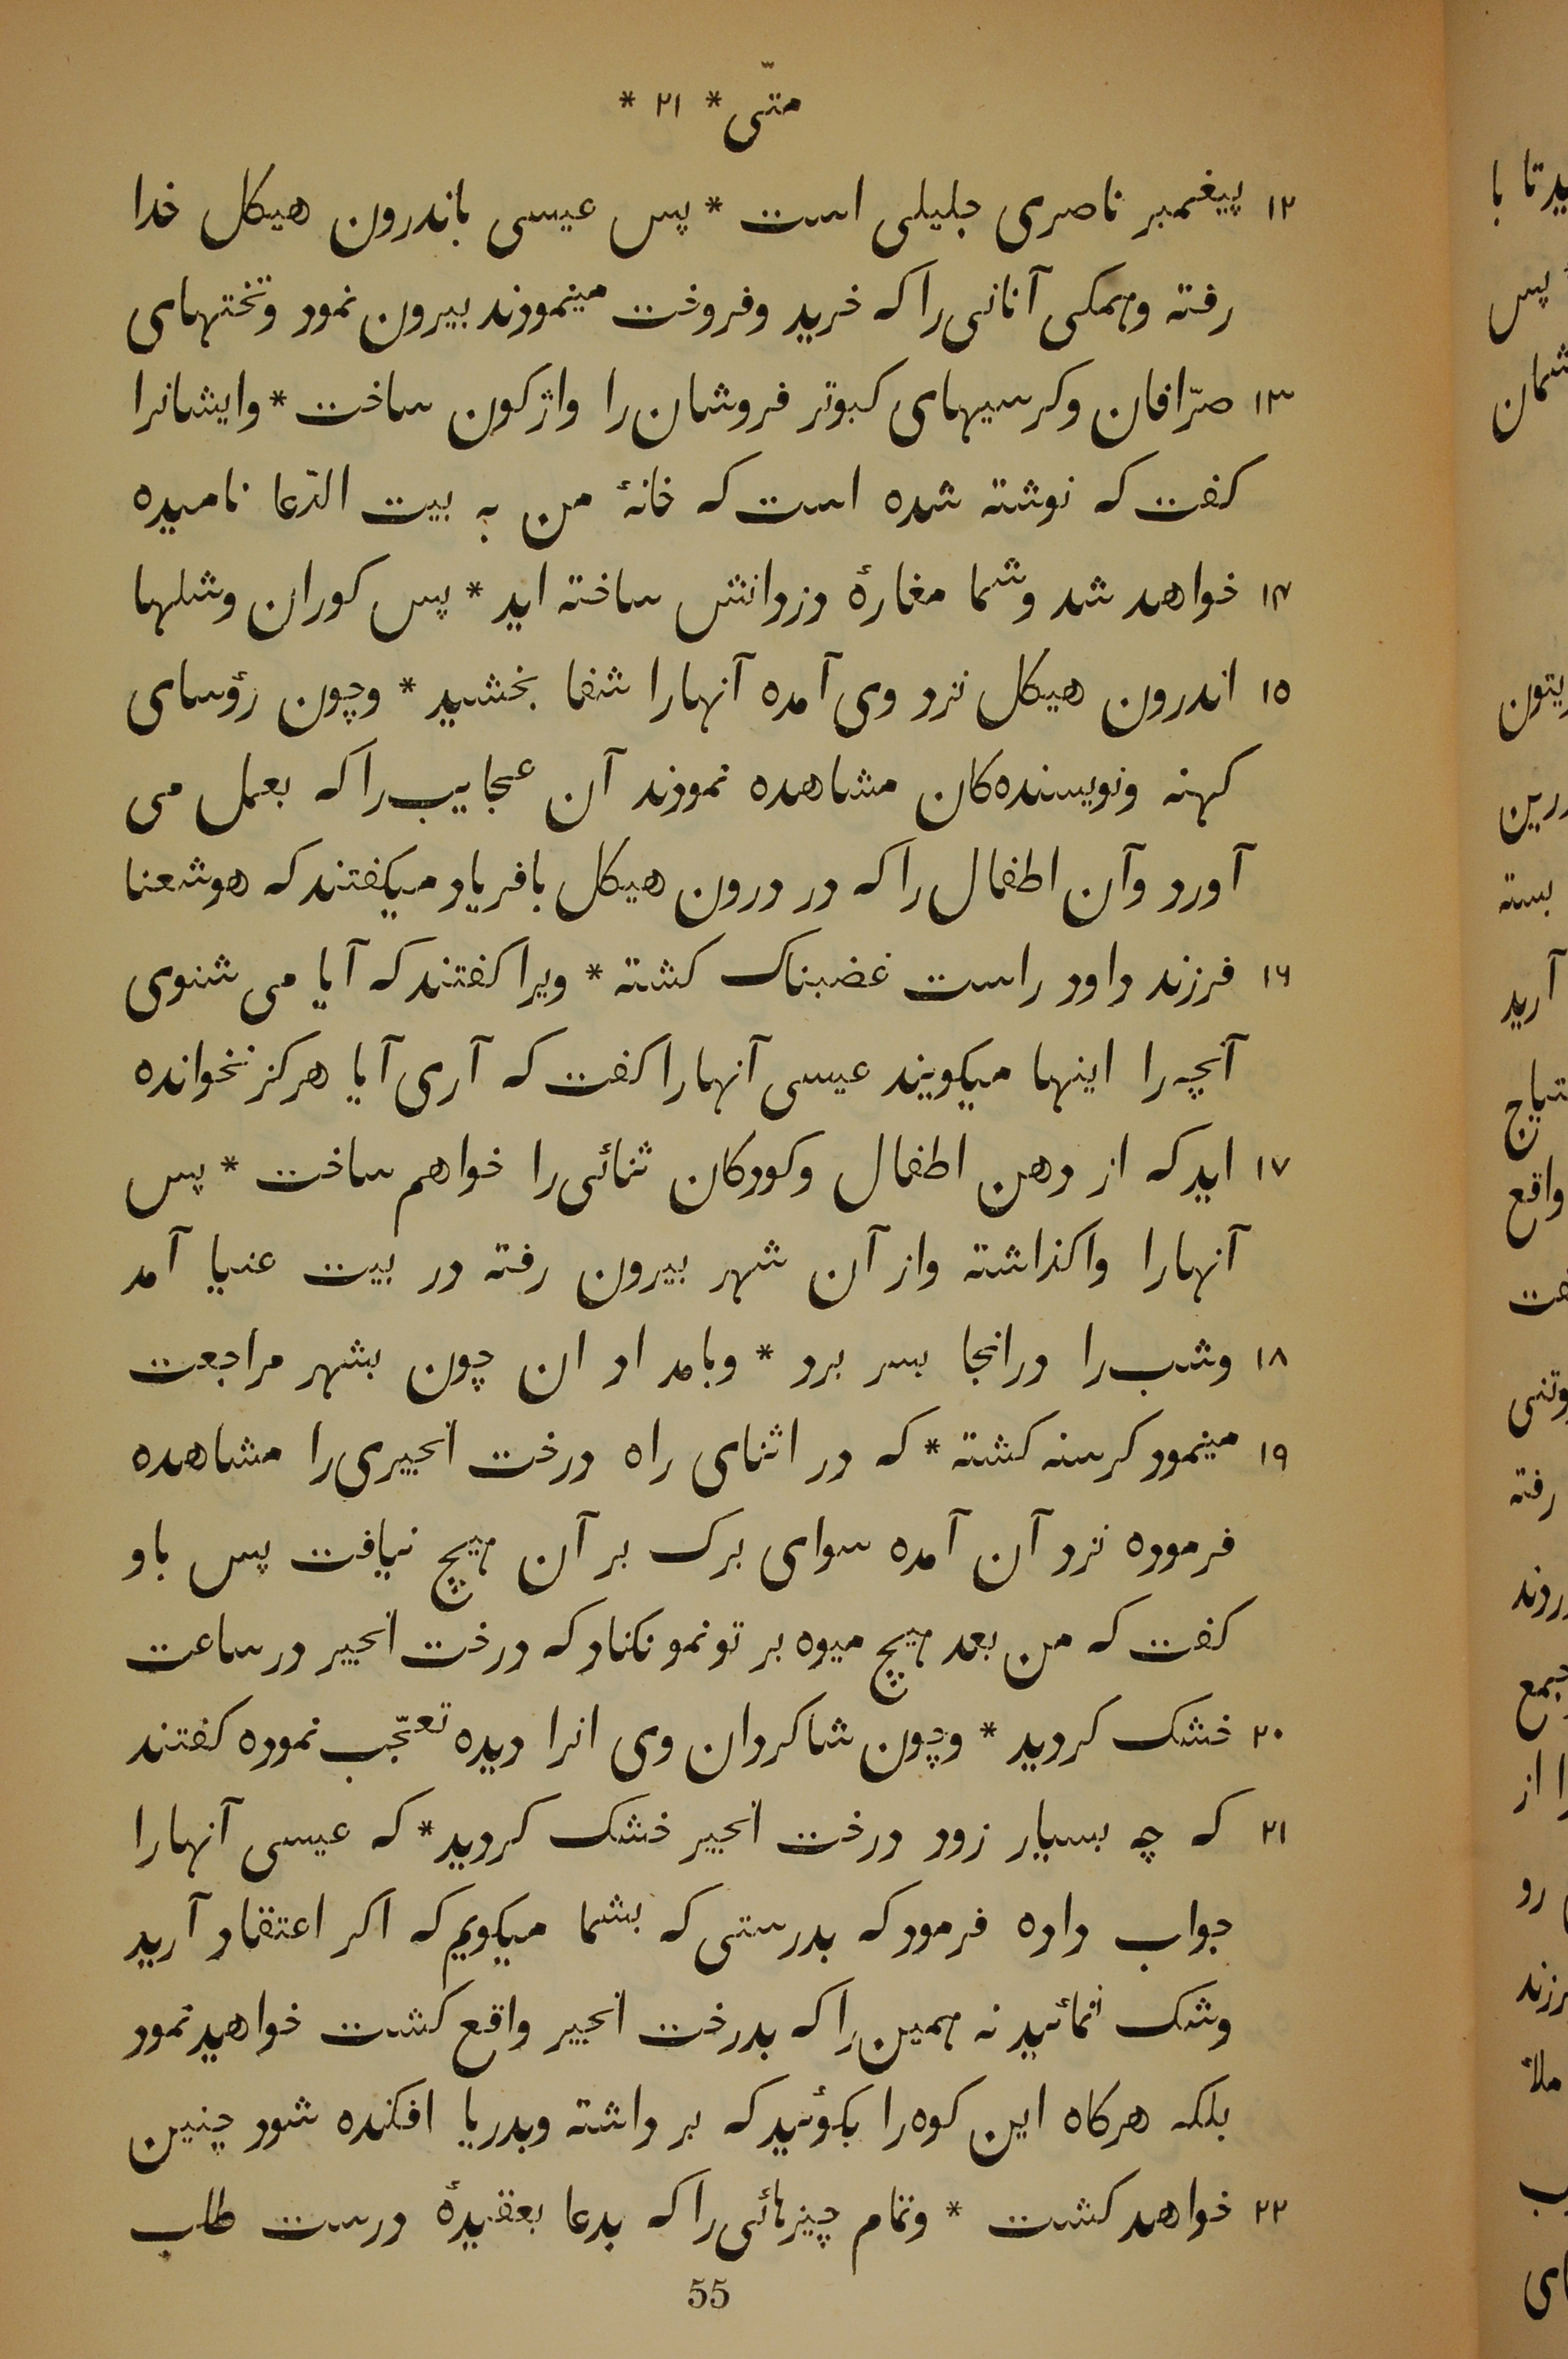 متّی * ۲۱ *
۱۲ پیغمبر ناصری جلیلی است * پس عیسی باندرون هیکل خدا
رفته وهمکی آنانی را که خرید وفروخت مینمودند بیرون نمود وتختهای
۱۳ صرّافان وکرسیهای کبوتر فروشان را واژکون ساخت * وایشانرا
کفت که نوشته شده است که خانهٔ من به بیت الدّعا نامیده
۱۴ خواهد شد وشما مغارهٔ دزدانش ساخته اید * پس کوران وشلها
۱۵ اندرون هیکل نزد وی آمده آنهارا شفا بخشید * وچون رؤسای
کهنه ونویسنده‌کان مشاهده نمودند آن عجایب را که بعمل می
آورد وآن اطفال را که در درون هیکل بافریاد میکفتند که هوشعنا
۱۶ فرزند داود راست غضبناک کشته * ویرا کفتند که آیا می شنوی
آنچه را اینها میکویند عیسی آنهارا کفت که آری آیا هرکز نخوانده
۱۷ اید که از دهن اطفال وکودکان ثنائی را خواهم ساخت * پس
آنهارا واکذاشته واز آن شهر بیرون رفته در بیت عنیا آمد
۱۸ وشب را درانجا بسر برد * وبامد اد ان چون بشهر مراجعت
۱۹ مینمود کرسنه کشته * که در اثنای راه درخت انجیری را مشاهده
فرموده نزد آن آمده سوای برک بر آن هیچ نیافت پس باو
کفت که من بعد هیچ میوه بر تو نمو نکناد که درخت انجیر در ساعت
۲۰ خشک کردید * وچون شاکردان وی انرا دیده تعجّب نموده کفتند
۲۱ که چه بسیار زود درخت انجیر خشک کردید * که عیسی آنهارا
جواب داده فرمود که بدرستی که بشما میکویم که اکر اعتقاد آرید
وشک ننمائید نه همین را که بدرخت انجیر واقع کشت خواهید نمود
بلکه هرکاه این کوه را بکوئید که بر داشته وبدریا افکنده شود چنین
۲۲ خواهد کشت * وتمام چیزهائی را که بدعا بعقیدهٔ درست طلب
55